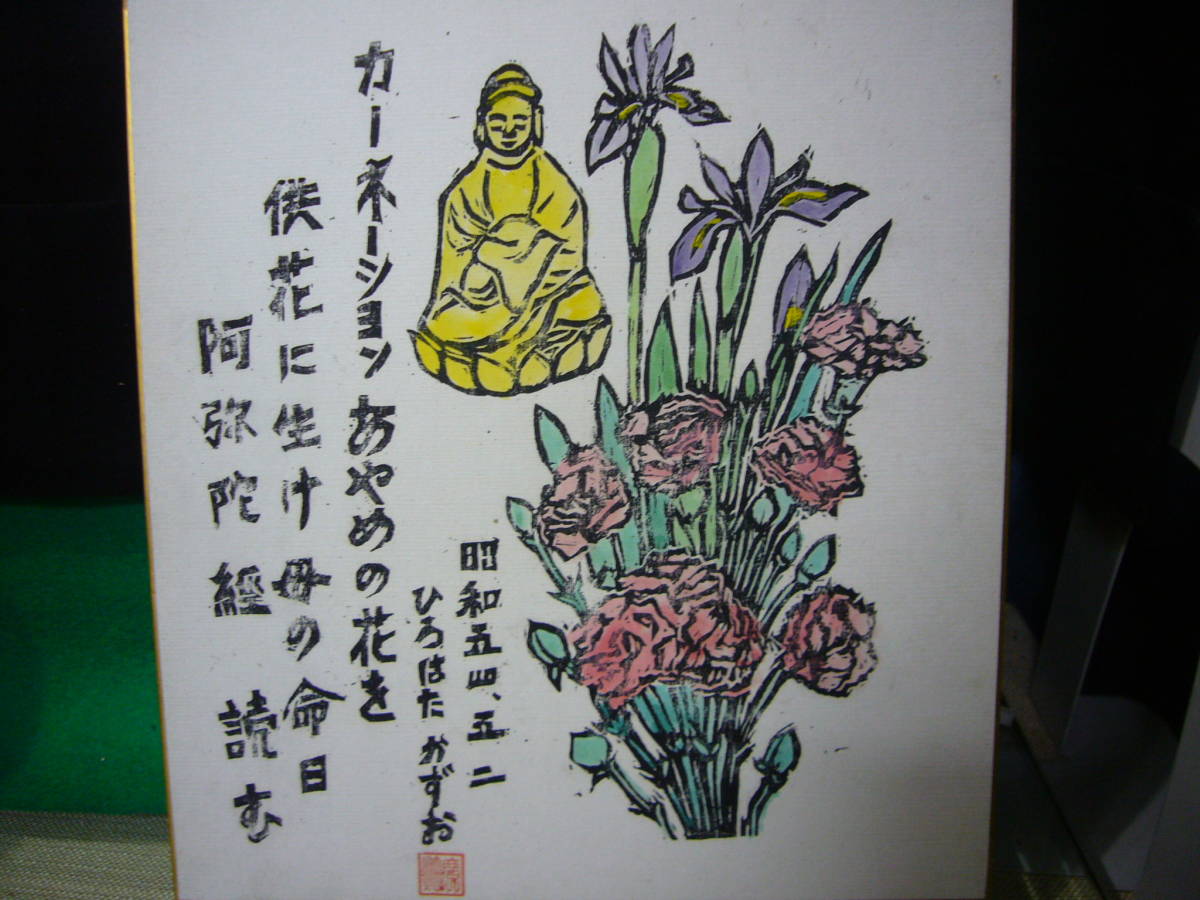 カーネーションあやめの花を
供花に生け母の命日
阿弥陀経 読む
昭和五四、五二
ひろはた かずお